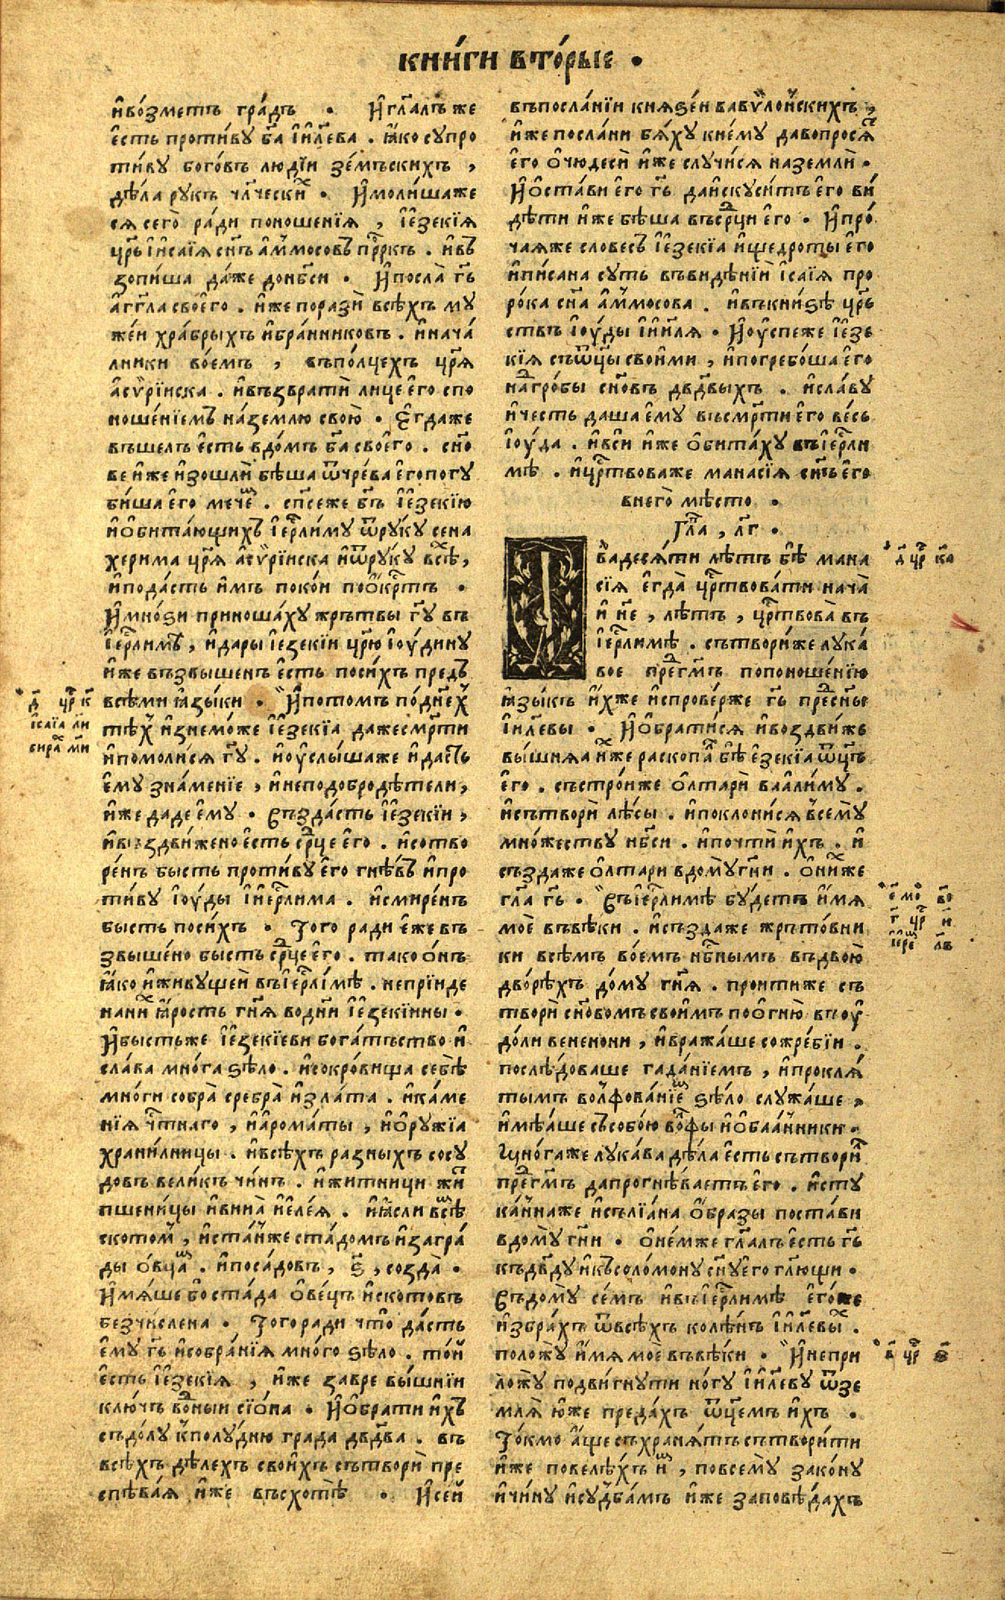 книги вторые .
и возметъ градъ . И гл҃алъ же
есть противу б҃а ӏи҃лева . ꙗко супро
тиву боговъ людїи земъскихъ ,
дѣла рукъ чл҃ческиⷯ . И молишаже
ся сего ради поношенїя , ӏезекїя
цр҃ь ӏ исаїя сн҃ъ аммосовъ прⷪ҇ркъ . и въ
зопиша даже до нб҃си . И посла гь҃
аг҃гла своего . иже порази всѣхъ му
жеи храбрыхъ и бранниковъ . и нача
лники воемъ , въ полцехъ цр҃я
асѵрїиска . и възврати лице его спо
ношенїемъ на землю свою . Егдаже
въшелъ есть в домъ б҃а своего . сн҃о
ве иже изошли бѣша ѿ чрева его погу
биша его мечеⷨ . сп҃се же бг҃ъ ӏезекїю
и обитающихъ ӏер҃лиму ѿ руку сена
херима цр҃я асѵрїиска и ѿ руку всѣⷯ,
и подасть имъ покои по окрⷭ҇тъ .
И мнози приношаху жрътвы гу҃ въ
ӏер҃лимъ , и дары ӏезекїи цр҃ю ӏоудину
иже възвышенъ есть по сихъ предъ
всѣми языки . И потомъ по днеⷯ
тѣⷯ изнеможе ӏезекїа даже смр҃ти
и помолися гу҃ . и услышаже и дасть
ему знаменїе , и не по добродѣтели,
иже даде ему . Създасть ӏезекїи ,
и въздвижено есть ср҃це его . и сотво
ренъ бысть противу его гнѣвъ и про
тиву ӏоуды ӏ ӏер҃лима . и смиренъ
бысть по сихъ . Того ради еже въ
звышено бысть ср҃це его . тако онъ
ꙗко и живущеи въ ӏер҃лимѣ . не прїиде
на ниⷯ ꙗрость гн҃я во дн҃и ӏезекїины .
И бысть же ӏезекїеви богатъство и
слава многа ѕѣло . и сокровища себѣ
многи собра сребра и злата . и каме
нїя чⷭ҇тнаго , и ароматы , и оружїа
хранилницы . и всѣхъ разныхъ сосу
довъ великъ чинъ . и житници жи
пшеницы и вина и елея . и ꙗсли всѣⷨ
скотомъ , и станⷤже стадомъ и загра
ды овцаⷨ . и посадовъ , ѕ҃ , созда .
Имяше бо стада овецъ и скотовъ
безчислена . Того ради что дасть
ему гь҃ и собранїя много ѕѣло . тои
есть ӏезекїя , иже завре вышнїи
ключъ воⷣныи сїона . И обрати ихъ
съ долу к полудню града дв҃два . въ
всѣхъ дѣлехъ своихъ сътвори пре
спѣвая иже въсхотѣ . И сеи
д҃ цр҃ к҃
ӏсаїа ли҃
сираⷯ ми҃
въ посланїи князеи вавѵлонскихъ ,
иже послани бяху к нему да вопрося
его о чюдеси иже случися на земли .
И остави его гь҃ да искуситъ его ви
дѣти иже бѣша въ срⷣци его . И про
чаяже словесъ ӏезекїа и щедроты его
и писана суть въ видѣнїи ӏсаїя про
рока сн҃а аммосова . и въ книѕѣ цр҃ь
ствъ ӏоуды ӏ ӏи҃ля . И успеже ӏезе
кїя съ ѿц҃ы своими , и погребоша его
наⷣ гробы сн҃овъ дв҃двыхъ . и славу
и честь даша ему въ смр҃ти его весь
ӏоуда . и вси иже обитаху въ ӏер҃ли
мѣ . и цр҃твоваже манасїя сн҃ъ его
в него мѣсто .
Гл҃а , л҃г .
Ввадесяти лѣтъ бѣ мана
сїя егда цр҃твовати нача
и н҃е , лѣтъ , цр҃твова въ
ӏер҃лимѣ . сътвориже лука
вое преⷣ гм҃ъ по поношенїю
языкъ ихже испроверже гь҃ преⷣ сн҃ы
ӏи҃левы . И обратися и воздвиже
вышняа иⷤже раскопаⷧ бѣ езекїа ѿц҃ъ
его . състроиже олтари ваалиму .
и сътвори лѣсы . и поклонися всему
множеству нб҃си . и почти ихъ . и
създаже олтари в дому гн҃и . о ниⷯже
гл҃а гь҃ . Въ ӏер҃лимѣ будетъ имя
мое въ вѣки . и създаже жрътовни
ки всѣмъ воемъ нб҃нымъ въ двою
дворѣхъ дому гн҃я . проитиже съ
твори сн҃овомъ своимъ по огню в поу
доли бененони , и вражаше со жребїи .
послѣдоваше гаданїемъ , и прокля
тымъ волфованїеⷨ ѕѣло служаше ,
имѣаше съ собою волⷯфы и обаанники .
Многаже лукава дѣла есть сътвориⷧ
преⷣ гм҃ъ да прогнѣваетъ его . исту
каннаже и сълїана образы постави
в дому гн҃и . о немже гл҃алъ есть гь҃
къ дв҃ду и къ соломону сн҃у его гл҃ющи .
Въ дому семъ и въ ӏер҃лимѣ егоже
избрахъ ѿ всѣхъ колѣнъ ӏи҃левыⷯ .
положу имя мое въ вѣки . И не при
ложу подвигнути ногу ӏи҃леву ѿ зе
мля юже предахъ ѿц҃емъ ихъ .
Токмо аще съхранятъ сътворити
иже повелѣхъ иⷨ , по всему закону
и чину и судбамъ иже заповѣдахъ
д҃ цр҃ к҃а
е҃ мо во
г҃ цр҃ и
ӏереⷨ лв҃
в҃ цр҃ з҃